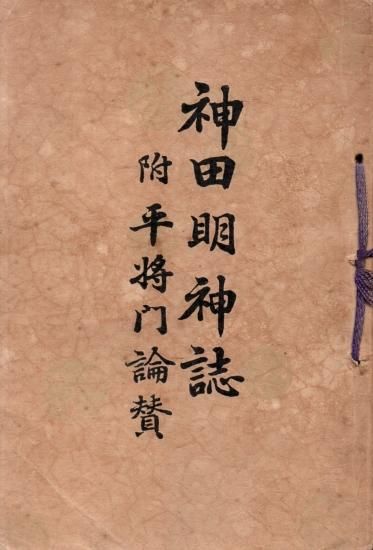 神田明神誌
附平将门論賛